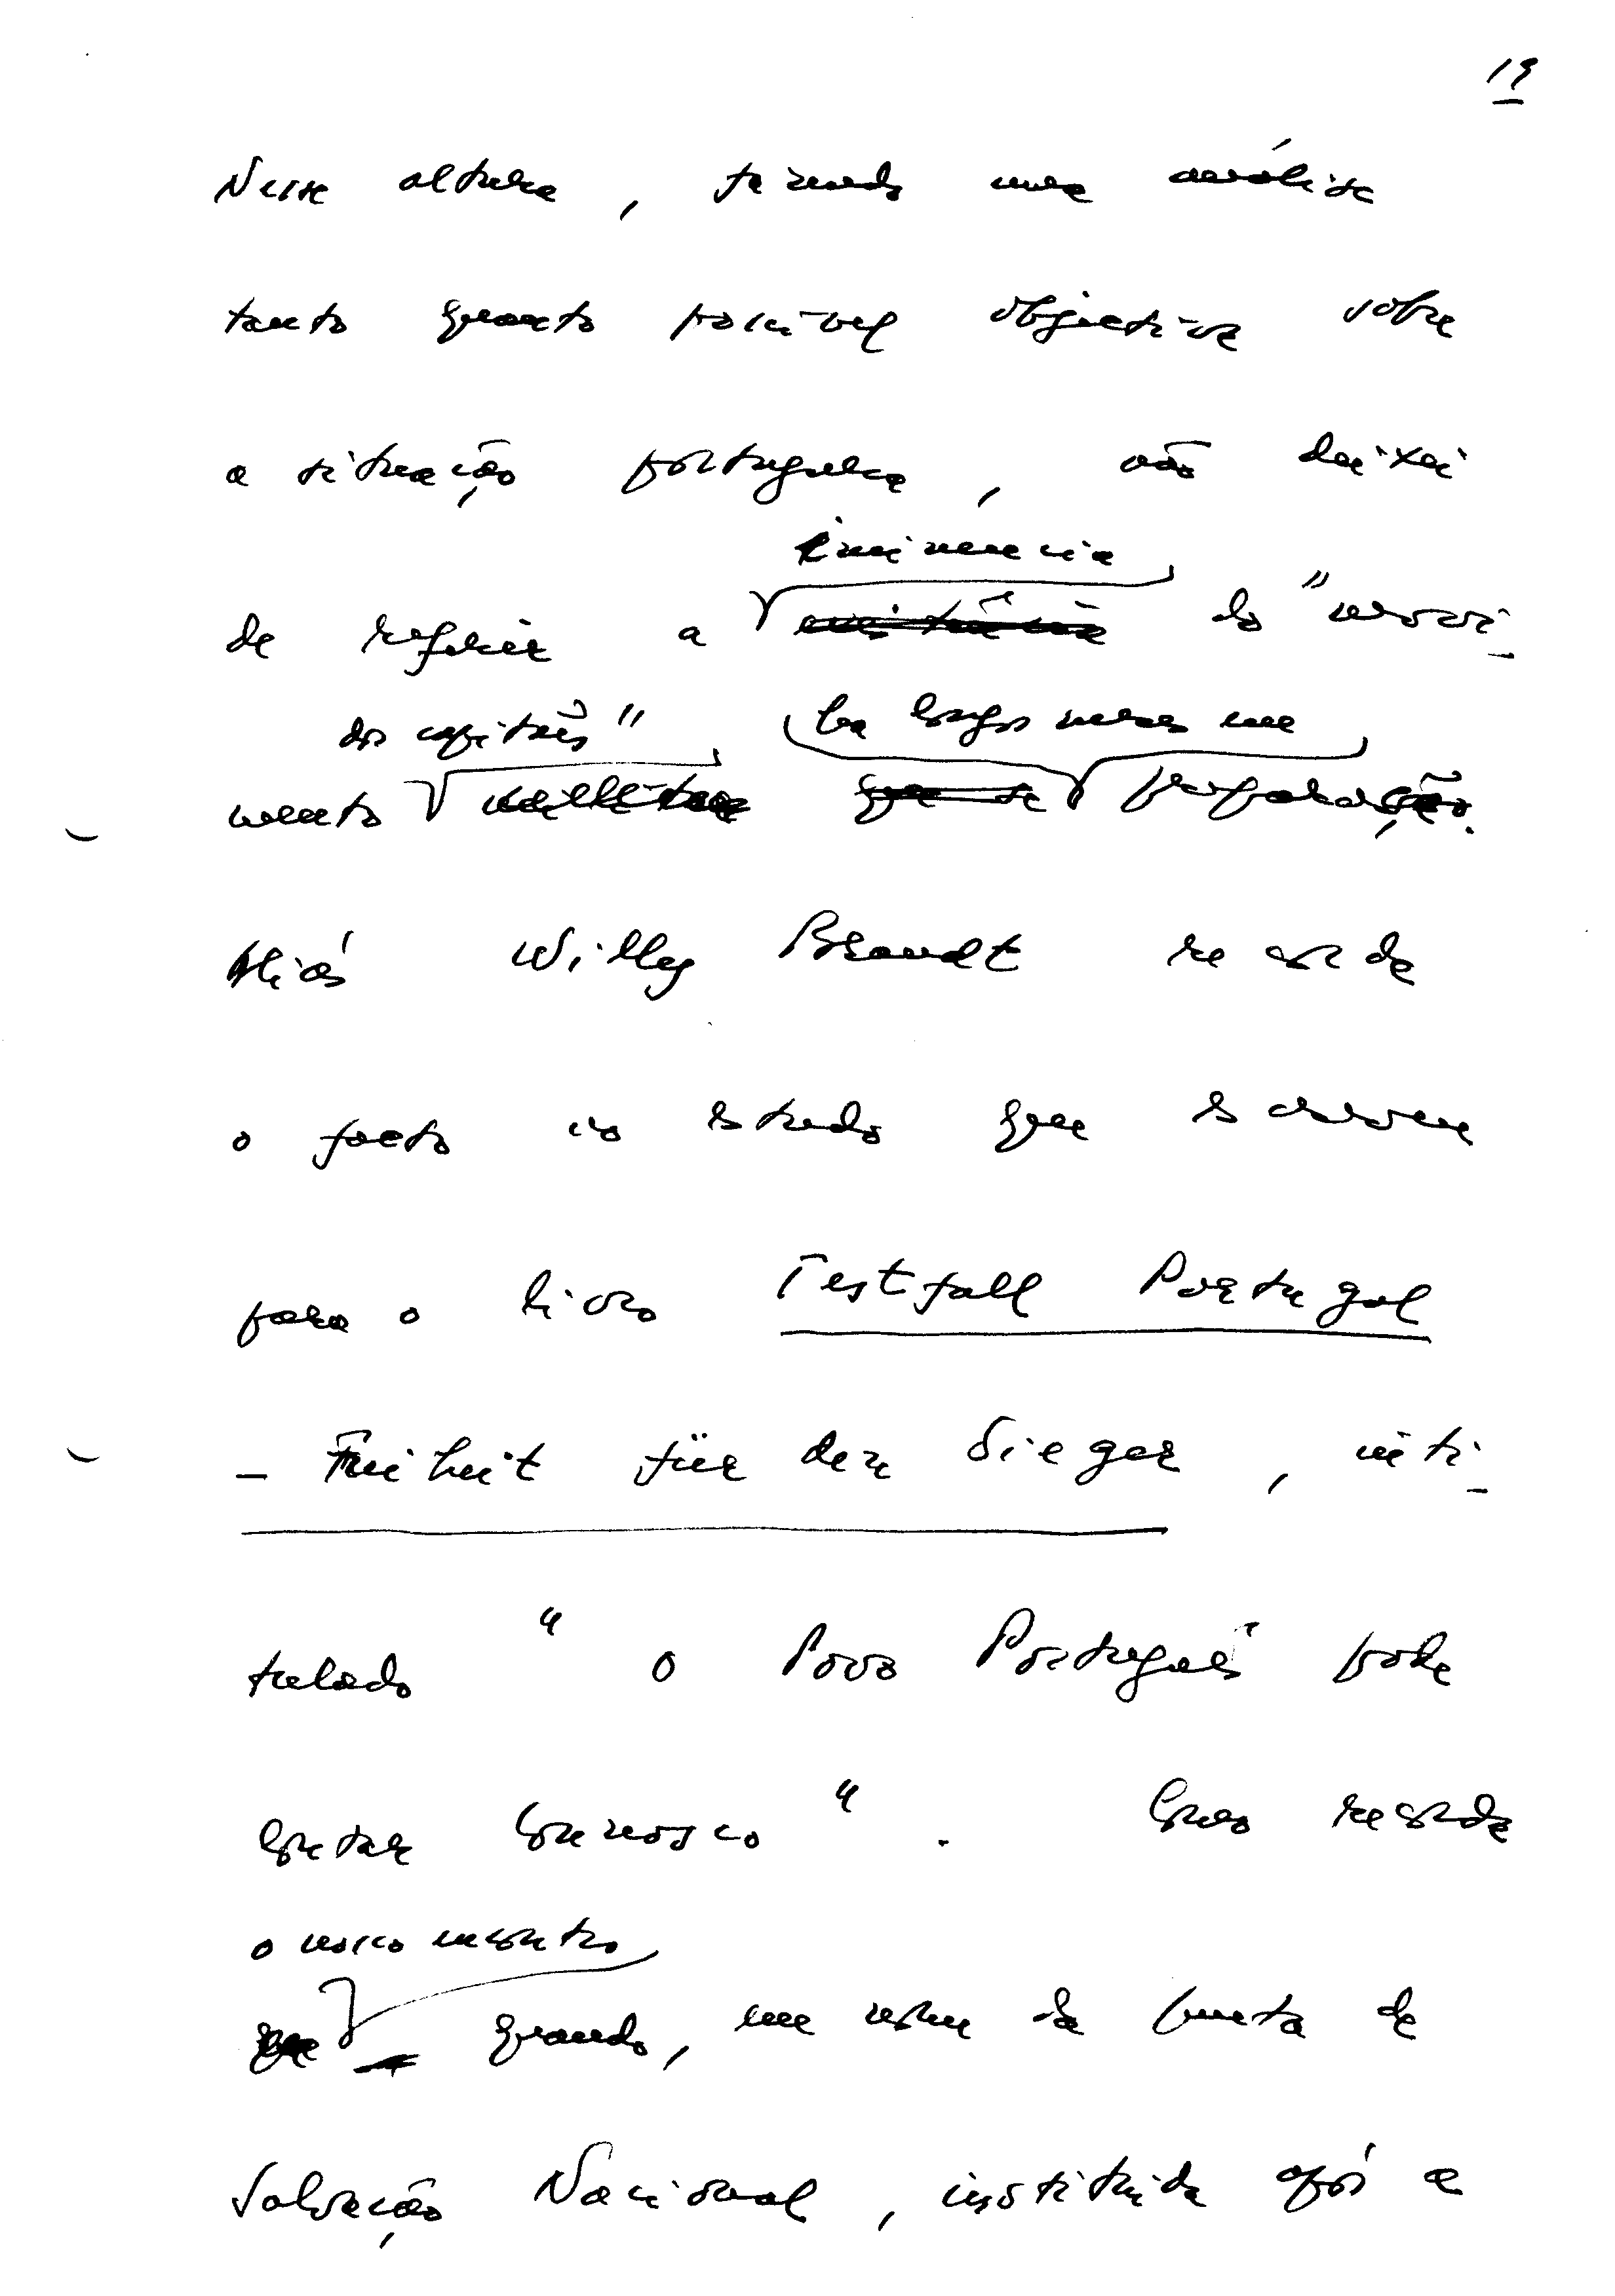 19
Nessa altura, fazendo uma análise
tanto quanto possível objectiva sobre
a situação portuguesa, não deixei
iminência
de referir a do "movi-
dos capitães" há longos meses em
mento preparação.
Aliás Willy Brandt recorda
o facto no estudo que escreveu
para o livro Testfall Portugal
- Freiheit für den Sieger, inti-
tulado "O Povo Português pode
contar connosco". Como recorda
o nosso encontro
quando, em nome da Junta de
Salvação Nacional, instituída após a